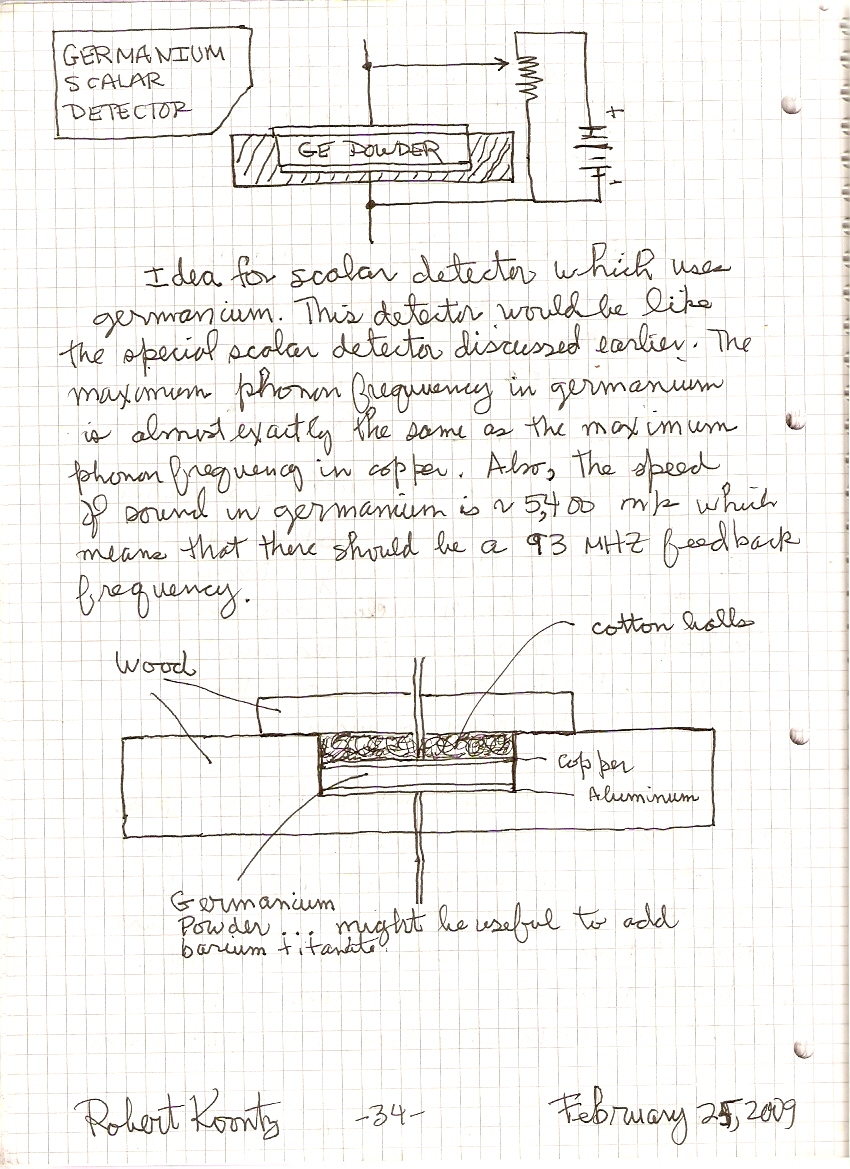 GERMANIUM
SCALAR
DETECTOR
GE POWDER
+
-
Idea for scalar detector which uses
germanium. This detector would be like
the special scalar detector discussed earlier. The
maximum phonon frequency in germanium
is almost exactly the same as the maximum
phonon frequency in copper. Also, the speed
of sound in germanium is ~ 5,400 m/s which
means that there should be a 93 MHZ feedback
frequency.
cotton balls
Wood
copper
Aluminum
Germanium
Powder ... might be useful to add
barium titanate.
Robert Koontz -34- February 25, 2009